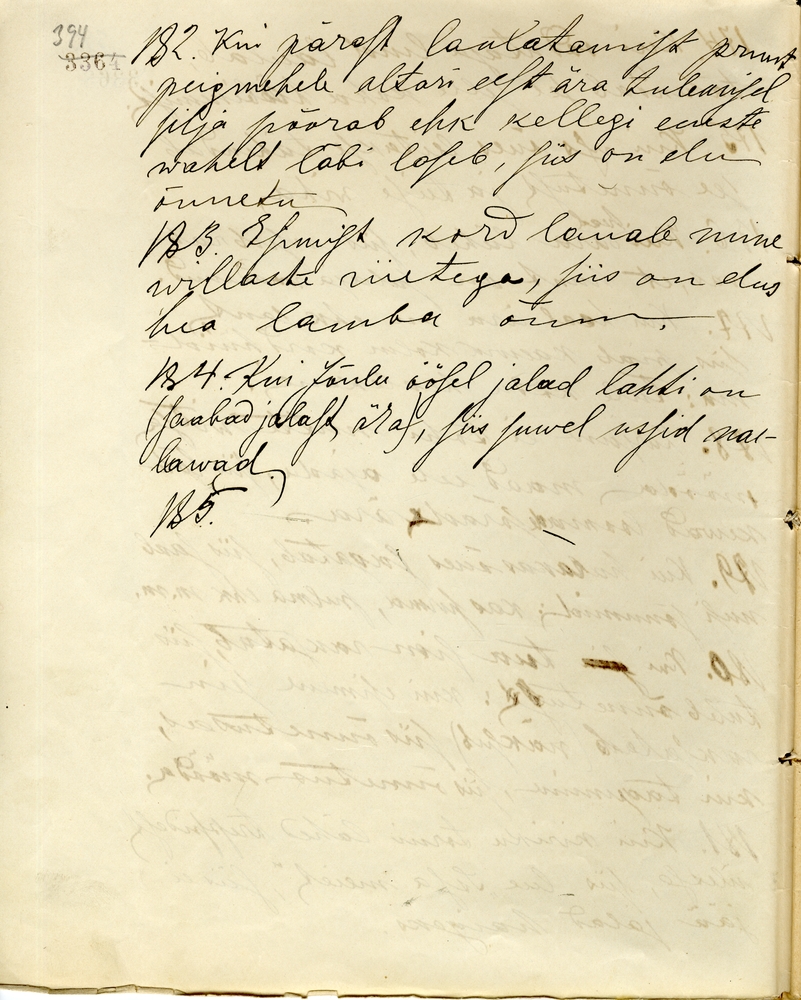 394
3364
182. Kui pärast laulatamist pruut
peigmehele altari eest ära tulemisel
silja pöörab ehk kellegi eneste
wahelt läbi laseb, siis on elu
õnnetu
183. Esimist kord lauale mine
willaste riietega, siis on elus
hea lamba õnn.
184. Kui Jõulu öösel jalad lahti on
(saabad jalast ära), siis suwel ussid nae-
lawad.
185.